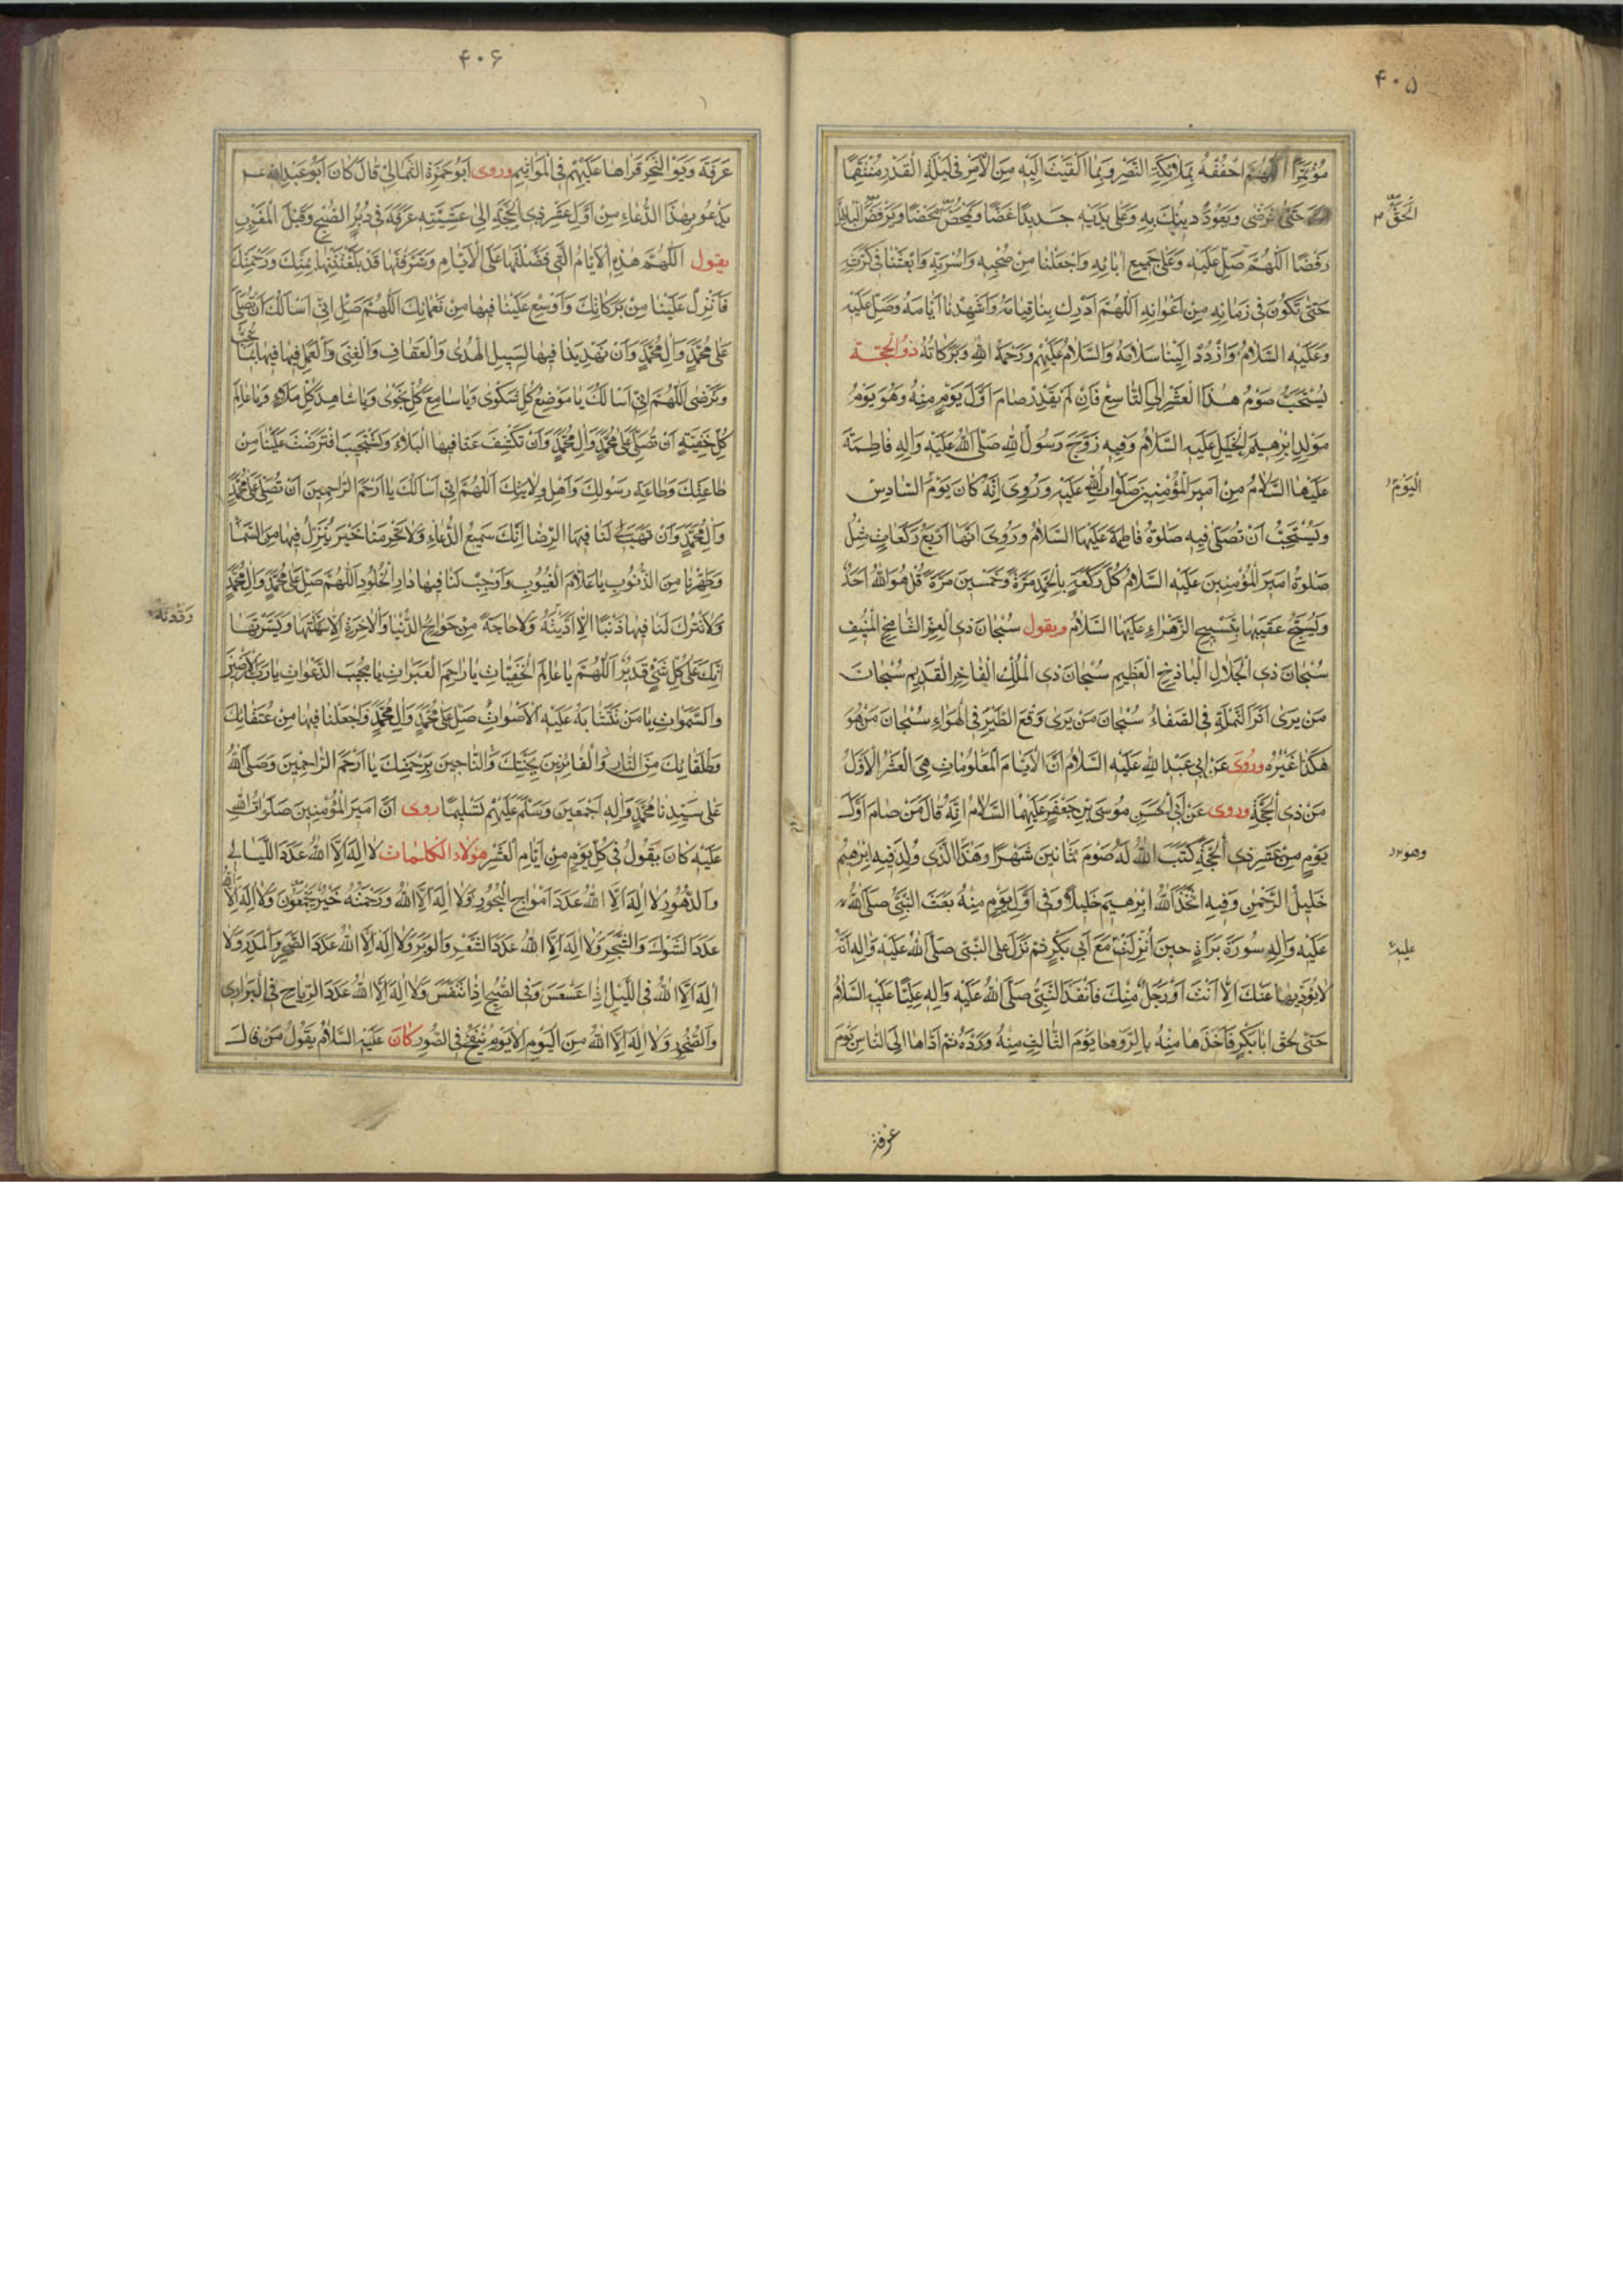 ۴۰۵
مُؤْتَمِرًا اَللّٰهُمَّ احْفُفْهُ بِمَلَائِكَةِ النَّصْرِ وَبِمَا اَلْقَيْتَ اِلَيْهِ مِنَ الْاَمْرِ فِى لَيْلَةِ الْقَدْرِ مُنْتَقِمًا
حَتّٰى تَرْضٰى وَيَعُودَ دِينُكَ بِهِ وَعَلٰى يَدَيْهِ جَدِيدًا غَضًّا وَيَمْحَضَ الْحَقَّ مَحْضًا وَيَرْفُضَ الْبَاطِلَ
رَفْضًا اَللّٰهُمَّ صَلِّ عَلَيْهِ وَعَلٰى جَمِيعِ اٰبَائِهِ وَاجْعَلْنَا مِنْ صَحْبِهِ وَاُسْرَتِهِ وَابْعَثْنَا فِى كَرَّتِهِ
حَتّٰى نَكُونَ فِى زَمَانِهِ مِنْ اَعْوَانِهِ اَللّٰهُمَّ اَدْرِكْ بِنَا قِيَامَهُ وَاَشْهِدْنَا اَيَّامَهُ وَصَلِّ عَلَيْهِ
وَعَلَيْهِ السَّلَامُ وَارْدُدْ اِلَيْنَا سَلَامَهُ وَالسَّلَامُ عَلَيْهِمْ وَرَحْمَةُ اللّٰهِ وَبَرَكَاتُهُ ذُو الْحِجَّة
يُسْتَحَبُّ صَوْمُ هٰذَا الْعَشْرِ اِلَى التَّاسِعِ فَاِنْ لَمْ يَقْدِرْ صَامَ اَوَّلَ يَوْمٍ مِنْهُ وَهُوَ يَوْمُ
مَوْلِدِ اِبْرٰهِيمَ الْخَلِيلِ عَلَيْهِ السَّلَامُ وَفِيهِ زَوَّجَ رَسُولُ اللّٰهِ صَلَّى اللّٰهُ عَلَيْهِ وَاٰلِهِ فَاطِمَةَ
عَلَيْهَا السَّلَامُ مِنْ اَمِيرِ الْمُؤْمِنِينَ صَلَوَاتُ اللّٰهِ عَلَيْهِ وَرُوِىَ اَنَّهُ كَانَ يَوْمَ السَّادِسِ
وَيُسْتَحَبُّ اَنْ تُصَلِّىَ فِيهِ صَلٰوةَ فَاطِمَةَ عَلَيْهَا السَّلَامُ وَرُوِىَ اَنَّهَا اَرْبَعُ رَكَعَاتٍ مِثْلُ
صَلٰوةِ اَمِيرِ الْمُؤْمِنِينَ عَلَيْهِ السَّلَامُ كُلُّ رَكْعَةٍ بِالْحَمْدِ مَرَّةً وَخَمْسِينَ مَرَّةً قُلْ هُوَ اللّٰهُ اَحَدٌ
وَيُسَبِّحُ عَقِيبَهَا بِتَسْبِيحِ الزَّهْرَاءِ عَلَيْهَا السَّلَامُ وَيَقُولُ سُبْحَانَ ذِى الْعِزِّ الشَّامِخِ الْمُنِيفِ
سُبْحَانَ ذِى الْجَلَالِ الْبَاذِخِ الْعَظِيمِ سُبْحَانَ ذِى الْمُلْكِ الْفَاخِرِ الْقَدِيمِ سُبْحَانَ
مَنْ يَرٰى اَثَرَ النَّمْلَةِ فِى الصَّفَاءِ سُبْحَانَ مَنْ يَرٰى وَقْعَ الطَّيْرِ فِى الْهَوَاءِ سُبْحَانَ مَنْ هُوَ
هٰكَذَا غَيْرُهُ وَرُوِىَ عَنْ اَبِى عَبْدِ اللّٰهِ عَلَيْهِ السَّلَامُ اَنَّ الْاَيَّامَ الْمَعْلُومَاتِ هِىَ الْعَشْرُ الْاَوَّلُ
مِنْ ذِى الْحِجَّةِ وَرُوِىَ عَنْ اَبِى الْحَسَنِ مُوسَى بْنِ جَعْفَرٍ عَلَيْهِمَا السَّلَامُ اَنَّهُ قَالَ مَنْ صَامَ اَوَّلَ
يَوْمٍ مِنْ عَشْرِ ذِى الْحِجَّةِ كَتَبَ اللّٰهُ لَهُ صَوْمَ ثَمَانِينَ شَهْرًا وَهٰذَا الَّذِى وُلِدَ فِيهِ اِبْرٰهِيمُ
خَلِيلُ الرَّحْمٰنِ وَفِيهِ اتَّخَذَ اللّٰهُ اِبْرٰهِيمَ خَلِيلًا وَفِى اَوَّلِ يَوْمٍ مِنْهُ بَعَثَ النَّبِىُّ صَلَّى اللّٰهُ
عَلَيْهِ وَاٰلِهِ سُورَةَ بَرَاءَةٍ حِينَ اُنْزِلَتْ مَعَ اَبِى بَكْرٍ ثُمَّ نَزَلَ عَلَى النَّبِىِّ صَلَّى اللّٰهُ عَلَيْهِ وَاٰلِهِ اَنَّهُ
لَا يُؤَدِّيهَا عَنْكَ اِلَّا اَنْتَ اَوْ رَجُلٌ مِنْكَ فَاَنْفَذَ النَّبِىُّ صَلَّى اللّٰهُ عَلَيْهِ وَاٰلِهِ عَلِيًّا عَلَيْهِ السَّلَامُ
حَتّٰى لَحِقَ اَبَا بَكْرٍ فَاَخَذَهَا مِنْهُ بِالرَّوْحَاءِ يَوْمَ الثَّالِثِ مِنْهُ وَرَدَّهُ ثُمَّ اَدَّاهَا اِلَى النَّاسِ يَوْمَ
عرفة
الْحَقَّ
الْيَوْمُ
وهو
عليه
۴۰۶
عَرَفَةَ وَيَوْمَ النَّحْرِ قَرَاهَا عَلَيْهِمْ فِى الْمَوَاسِمِ وَرَوٰى اَبُو حَمْزَةَ الثُّمَالِىُّ قَالَ كَانَ اَبُو عَبْدِ اللّٰهِ
يَدْعُو بِهٰذَا الدُّعَاءِ مِنْ اَوَّلِ عَشْرِ ذِى الْحِجَّةِ اِلٰى عَشِيَّةِ عَرَفَةَ فِى دُبُرِ الصُّبْحِ وَقَبْلَ الْمَغْرِبِ
يَقُولُ اَللّٰهُمَّ هٰذِهِ الْاَيَّامُ الَّتِى فَضَّلْتَهَا عَلَى الْاَيَّامِ وَشَرَّفْتَهَا قَدْ بَلَّغْتَنِيهَا بِمَنِّكَ وَرَحْمَتِكَ
فَاَنْزِلْ عَلَيْنَا مِنْ بَرَكَاتِكَ وَاَوْسِعْ عَلَيْنَا فِيهَا مِنْ نَعْمَائِكَ اَللّٰهُمَّ صَلِّ اِنِّى اَسْاَلُكَ اَنْ تُصَلِّىَ
عَلٰى مُحَمَّدٍ وَاٰلِ مُحَمَّدٍ وَاَنْ تَهْدِيَنَا فِيهَا لِسَبِيلِ الْهُدٰى وَالْعَفَافِ وَالْغِنٰى وَالْعَمَلِ فِيهَا بِمَا تُحِبُّ
وَتَرْضٰى اَللّٰهُمَّ اِنِّى اَسْاَلُكَ يَا مَوْضِعَ كُلِّ شَكْوٰى وَيَا سَامِعَ كُلِّ نَجْوٰى وَيَا شَاهِدَ كُلِّ مَلَاءٍ وَيَا عَالِمَ
كُلِّ خَفِيَّةٍ اَنْ تُصَلِّىَ عَلٰى مُحَمَّدٍ وَاٰلِ مُحَمَّدٍ وَاَنْ تَكْشِفَ عَنَّا فِيهَا الْبَلَاءَ وَتَسْتَجِيبَ افْتَرَضْتَ عَلَيْنَا مِنْ
طَاعَتِكَ وَطَاعَةِ رَسُولِكَ وَاَهْلِ وِلَايَتِكَ اَللّٰهُمَّ اِنِّى اَسْاَلُكَ يَا اَرْحَمَ الرَّاحِمِينَ اَنْ تُصَلِّىَ عَلٰى مُحَمَّدٍ
وَاٰلِ مُحَمَّدٍ وَاَنْ تَهَبَ لَنَا فِيهَا الرِّضَا اِنَّكَ سَمِيعُ الدُّعَاءِ وَلَا تَحْرِمْنَا خَيْرَ يُنْزَلُ فِيهَا مِنَ السَّمَاءِ
وَطَهِّرْنَا مِنَ الذُّنُوبِ يَا عَلَّامَ الْغُيُوبِ وَاَوْجِبْ لَنَا فِيهَا دَارَ الْخُلُودِ اَللّٰهُمَّ صَلِّ عَلٰى مُحَمَّدٍ وَاٰلِ مُحَمَّدٍ
وَلَا تَتْرُكْ لَنَا فِيهَا ذَنْبًا اِلَّا اَدَّيْتَهُ وَلَا حَاجَةً مِنْ حَوَائِجِ الدُّنْيَا وَالْاٰخِرَةِ اِلَّا سَهَّلْتَهَا وَيَسَّرْتَهَا
اِنَّكَ عَلٰى كُلِّ شَىْءٍ قَدِيرٌ اَللّٰهُمَّ يَا عَالِمَ الْخَفِيَّاتِ يَا رَاحِمَ الْعَبَرَاتِ يَا مُجِيبَ الدَّعَوَاتِ يَا رَبَّ الْاَرَضِينَ
وَالسَّمٰوَاتِ يَا مَنْ تَتَشَابَهُ عَلَيْهِ الْاَصْوَاتُ صَلِّ عَلٰى مُحَمَّدٍ وَاٰلِ مُحَمَّدٍ وَاجْعَلْنَا فِيهَا مِنْ عُتَقَائِكَ
وَطُلَقَائِكَ مِنَ النَّارِ وَالْفَائِزِينَ بِجَنَّتِكَ وَالنَّاجِينَ بِرَحْمَتِكَ يَا اَرْحَمَ الرَّاحِمِينَ وَصَلَّى اللّٰهُ
عَلٰى سَيِّدِنَا مُحَمَّدٍ وَاٰلِهِ اَجْمَعِينَ وَسَلَّمَ عَلَيْهِمْ تَسْلِيمًا رُوِىَ اَنَّ اَمِيرَ الْمُؤْمِنِينَ صَلَوَاتُ اللّٰهِ
عَلَيْهِ كَانَ يَقُولُ فِى كُلِّ يَوْمٍ مِنْ اَيَّامِ الْعَشْرِ هٰؤُلَاءِ الْكَلِمَاتِ لَا اِلٰهَ اِلَّا اللّٰهُ عَدَدَ اللَّيَالِى
وَالدُّهُورِ لَا اِلٰهَ اِلَّا اللّٰهُ عَدَدَ اَمْوَاجِ الْبُحُورِ وَلَا اِلٰهَ اِلَّا اللّٰهُ وَرَحْمَتُهُ خَيْرٌ مِمَّا يَجْمَعُونَ وَلَا اِلٰهَ اِلَّا اللّٰهُ
عَدَدَ الشَّوْكِ وَالشَّجَرِ وَلَا اِلٰهَ اِلَّا اللّٰهُ عَدَدَ الشَّعْرِ وَالْوَبَرِ وَلَا اِلٰهَ اِلَّا اللّٰهُ عَدَدَ الْحَجَرِ وَالْمَدَرِ وَلَا
اِلٰهَ اِلَّا اللّٰهُ فِى اللَّيْلِ اِذَا عَسْعَسَ وَفِى الصُّبْحِ اِذَا تَنَفَّسَ وَلَا اِلٰهَ اِلَّا اللّٰهُ عَدَدَ الرِّيَاحِ فِى الْبَرَارِى
وَالصُّخُورِ وَلَا اِلٰهَ اِلَّا اللّٰهُ مِنَ الْيَوْمِ اِلٰى يَوْمِ يُنْفَخُ فِى الصُّورِ كَانَ عَلَيْهِ السَّلَامُ يَقُولُ مَنْ قَالَ